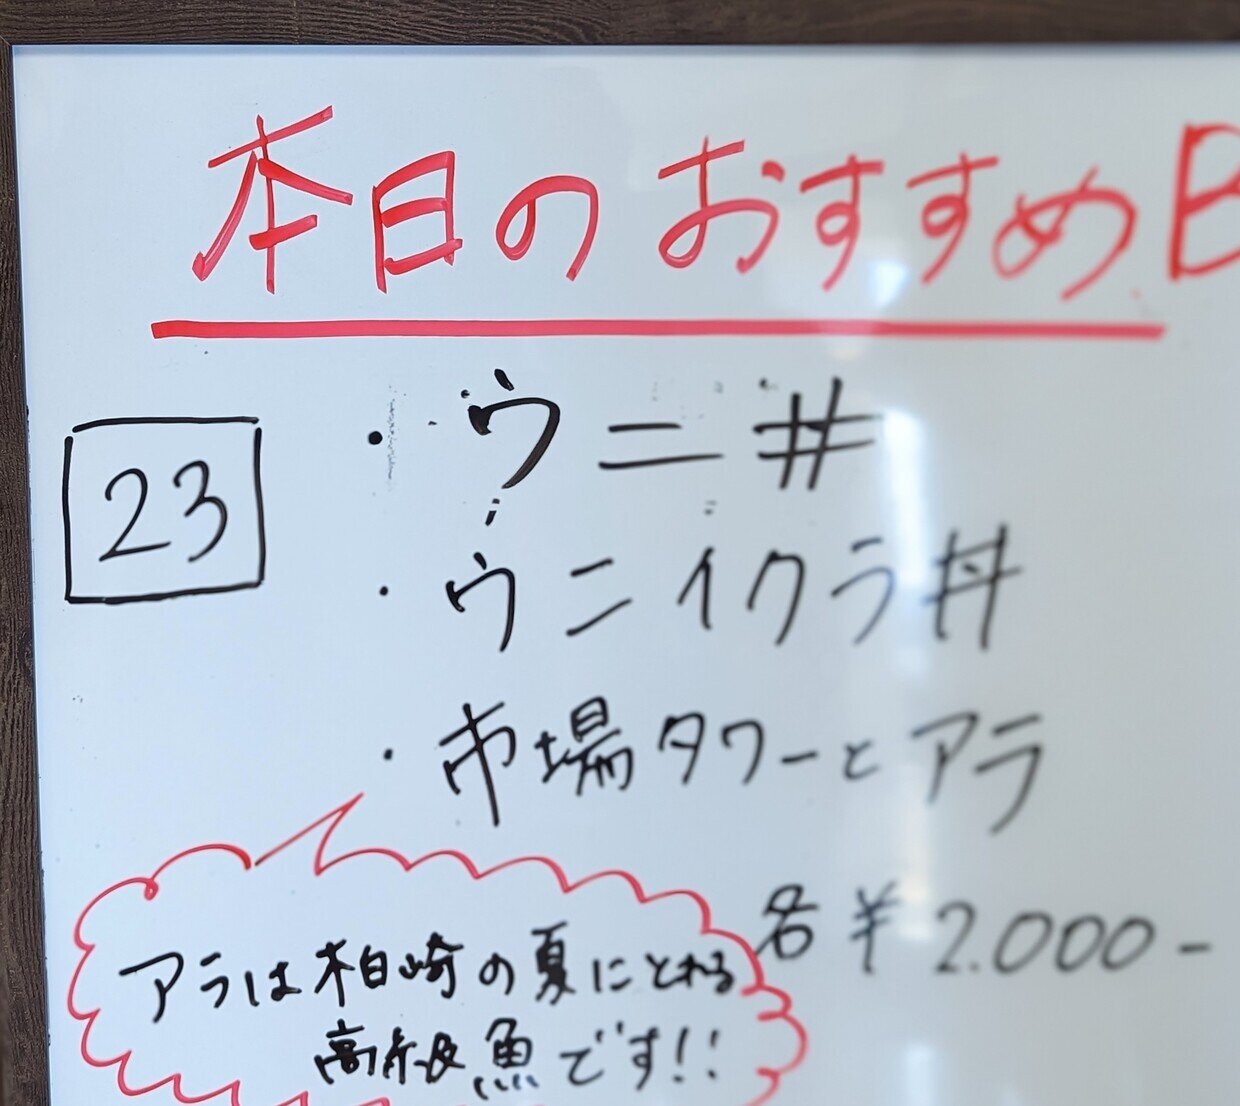 本日のおすすめB
23
・ウニ丼
・ウニイクラ丼
・市場タワーとアラ
各¥2.000-
アラは柏崎の夏にとれる
高級魚です!!